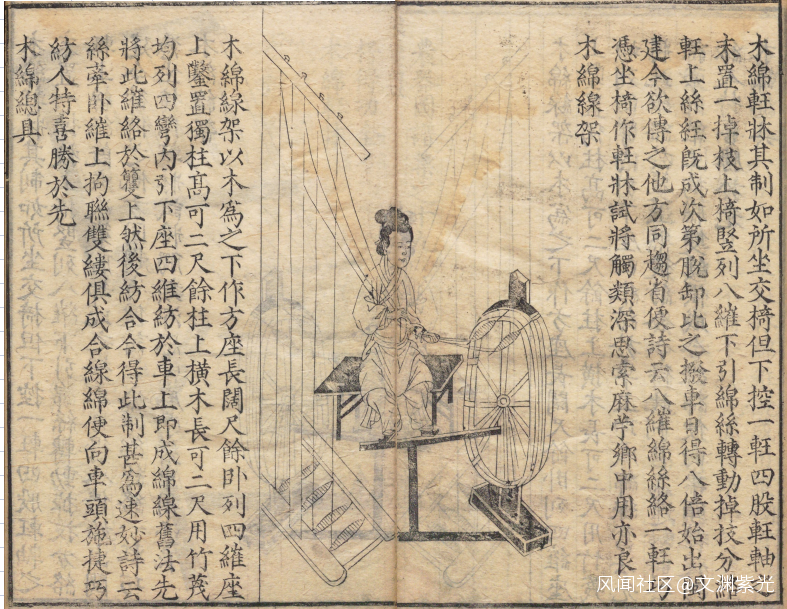 木綿軠牀其制如所坐交椅但下控一軠四股軠軸之
末置一掉枝上椅竪列八繀下引綿絲轉動掉枝分
軠上絲紝旣成次第脫卸比之撥車日得八倍始出
建今欲傳之他方同趨省便詩云八繀綿絲絡一軠
憑坐椅作軠牀試將觸類深思索麻苧鄉中用亦良
木綿線架
木綿線架以木爲之下作方座長闊尺餘卧列四繀座
上鑿置獨柱高可二尺餘柱上橫木長可二尺用竹茂
均列四彎內引下座四繀紡於車上即成綿線舊法先
將此繀絡於籰上然後紡合今得此制甚爲速妙詩云
絲牽卧繀上拘聯雙縷俱成合線綿便向車頭施捷巧
紡人特喜勝於先
木綿總具
风闻社区@文渊紫光